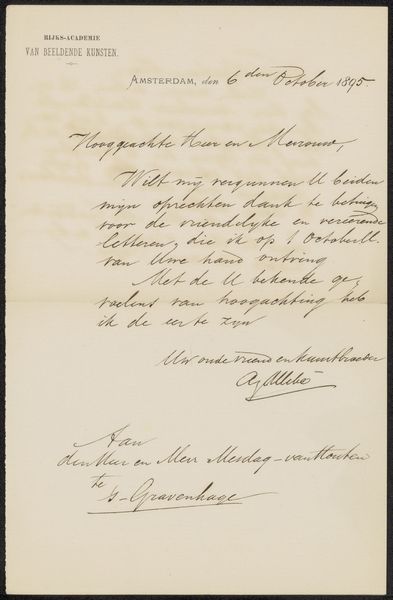 RIJKS-ACADEMIE
VAN BEELDENDE KUNSTEN.
AMSTERDAM, den 6den October 1895.
Hooggeachte Heer en Mevrouw,
Wilt mij vergunnen U beiden
mijn oprechten dank te betuigen
voor de vriendelyke en vereerende
letteren, die ik op 1 October ll.
van Uwe hand ontving
Met de U bekende ge-
voelens van hoogachting heb
ik de eer te zyn
Uw oude vriend en kunstbroeder
Aug Allebé
Aan
den Heer en Mevr Mesdag-van Houten
te
's-Gravenhage